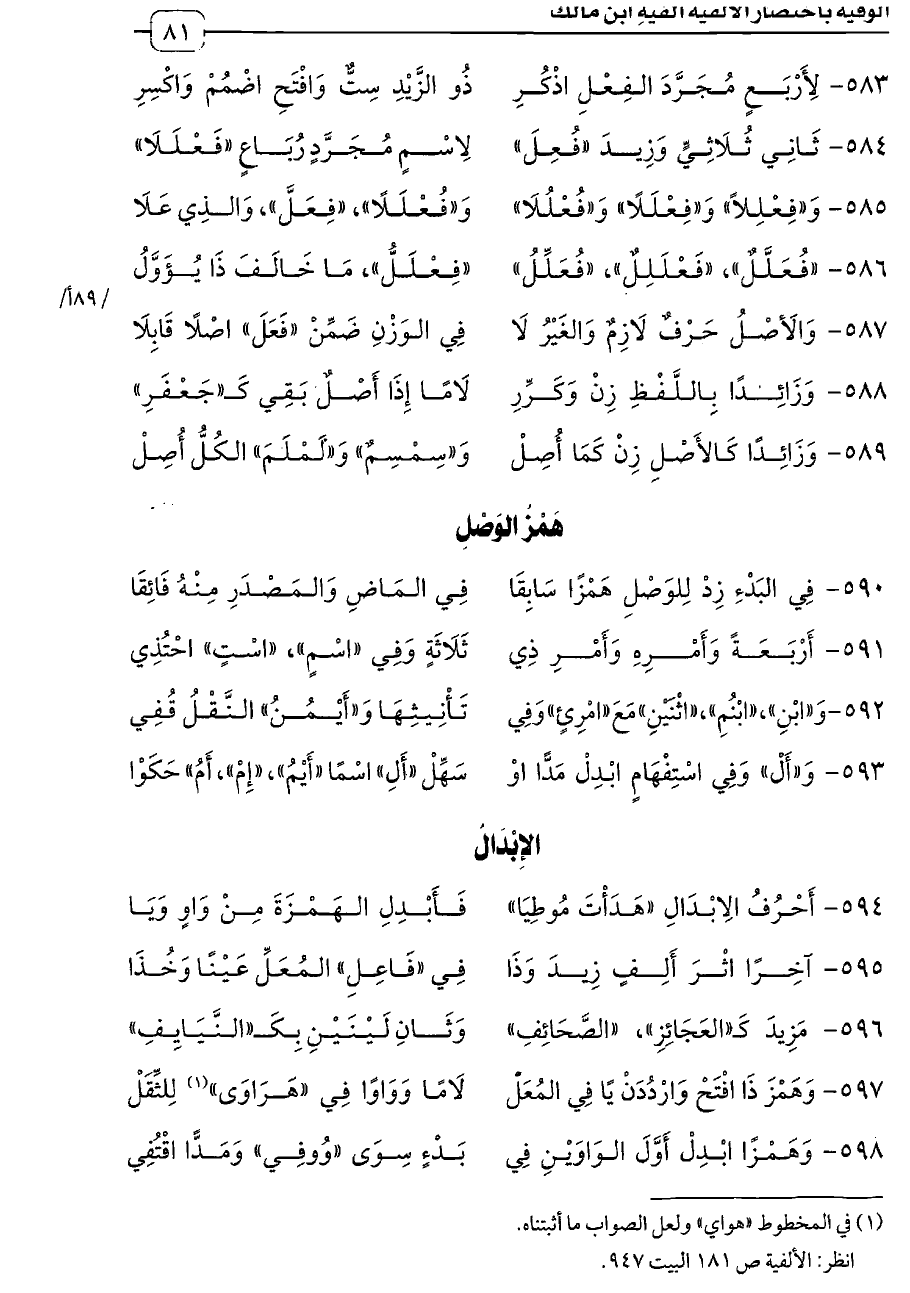 الوفية باختصار الألفية ألفية ابن مالك
٨١
٥٨٣- لِأَرْبَـــعٍ مُـجَـرَّدَ الـفِـعْـلِ اذْكُـرِ ذُو الزَّيْدِ سِتٌّ وَافْتَحِ اضْمُمْ وَاكْسِرِ
٥٨٤- ثَـانِي ثُـلَاثِيٍّ وَزِيـدَ «فُعِلَ» لِاسْـمٍ مُـجَـرَّدٍ رُبَـاعٍ «فَـعْـلَـلَا»
٥٨٥- وَ«فِعْلِلاً» وَ«فِعْلَلًا» وَ«فُعْلُلَا» وَ«فُـعْـلَـلًا»، «فِـعَـلَّ»، وَالـذِي عَلَا
٥٨٦- «فُعَلَّلٌ»، «فَعْلَلِلٌ»، «فُعَلِّلُ» «فِـعْـلَـلُّ»، مَـا خَـالَـفَ ذَا يُـؤَوَّلُ
/٨٩أ/
٥٨٧- وَالْأَصْـلُ حَـرْفٌ لَازِمٌ وَالغَيْرُ لَا فِي الـوَزْنِ ضَمِّنْ «فَعَلَ» اصْلًا قَابِلَا
٥٨٨- وَزَائِـــدًا بِـالـلَّـفْـظِ زِنْ وَكَـرِّرِ لَامًـا إِذَا أَصْـلٌ بَـقِي كَـ«جَـعْـفَـرِ»
٥٨٩- وَزَائِدًا كَالأَصْلِ زِنْ كَمَا أُصِلْ وَ«سِـمْـسِـمٌ» وَ«لَـمْـلَـمَ» الكُلُّ أُصِلْ
هَمْزُ الوَصْلِ
٥٩٠- فِي البَدْءِ زِدْ لِلوَصْلِ هَمْزًا سَابِقَا فِـي الـمَـاضِ وَالـمَـصْـدَرِ مِنْهُ فَائِقَا
٥٩١- أَرْبَـعَـةً وَأَمْـــرِهِ وَأَمْـــرِ ذِي ثَلَاثَةٍ وَفِي «اسْمٍ»، «اسْتٍ» احْتُذِي
٥٩٢-وَ«ابْنٍ»،«ابْنُمٍ»،«اثْنَيْنِ»مَعَ«امْرِئٍ»وَفِي تَأْنِيثِهَا وَ«أَيْـمُـنُ» النَّقْلُ قُفِي
٥٩٣- وَ«أَلْ» وَفِي اسْتِفْهَامٍ ابْدِلْ مَدًّا اوْ سَهِّلْ «أَلِ» اسْمًا «أَيْمُ»،«إِمْ»، أَمُ» حَكَوْا
الإِبْدَالُ
٥٩٤- أَحْرُفُ الِابْدَالِ «هَدَأْتَ مُوطِيَا» فَـأَبْـدِلِ الـهَـمْـزَةَ مِـنْ وَاوٍ وَيَـا
٥٩٥- آخِـرًا اثْـرَ أَلِــفٍ زِيـدَ وَذَا فِي «فَـاعِـلِ» الـمُعَلِّ عَيْنًا وَخُـذَا
٥٩٦- مَزِيدَ كَـ«العَجَائِزِ»، «الصَّحَائِفِ» وَثَــانِ لَيْنَيْنِ بِكَـ«الـنَّـيَـايِـفِ»
٥٩٧- وَهَمْزَ ذَا افْتَحْ وَارْدُدَنْ يَا فِي المُعَلّ لَامًـا وَوَاوًا فِي «هَـرَاوَى»(١) لِلثِّقَلْ
٥٩٨- وَهَـمْـزًا ابْدِلْ أَوَّلَ الـوَاوَيْـنِ فِي بَـدْءٍ سِوَى «وُوفِي» وَمَـدًّا اقْتُفِي
(١) في المخطوط «هواي» ولعل الصواب ما أثبتناه.
انظر: الألفية ص ١٨١ البيت ٩٤٧.